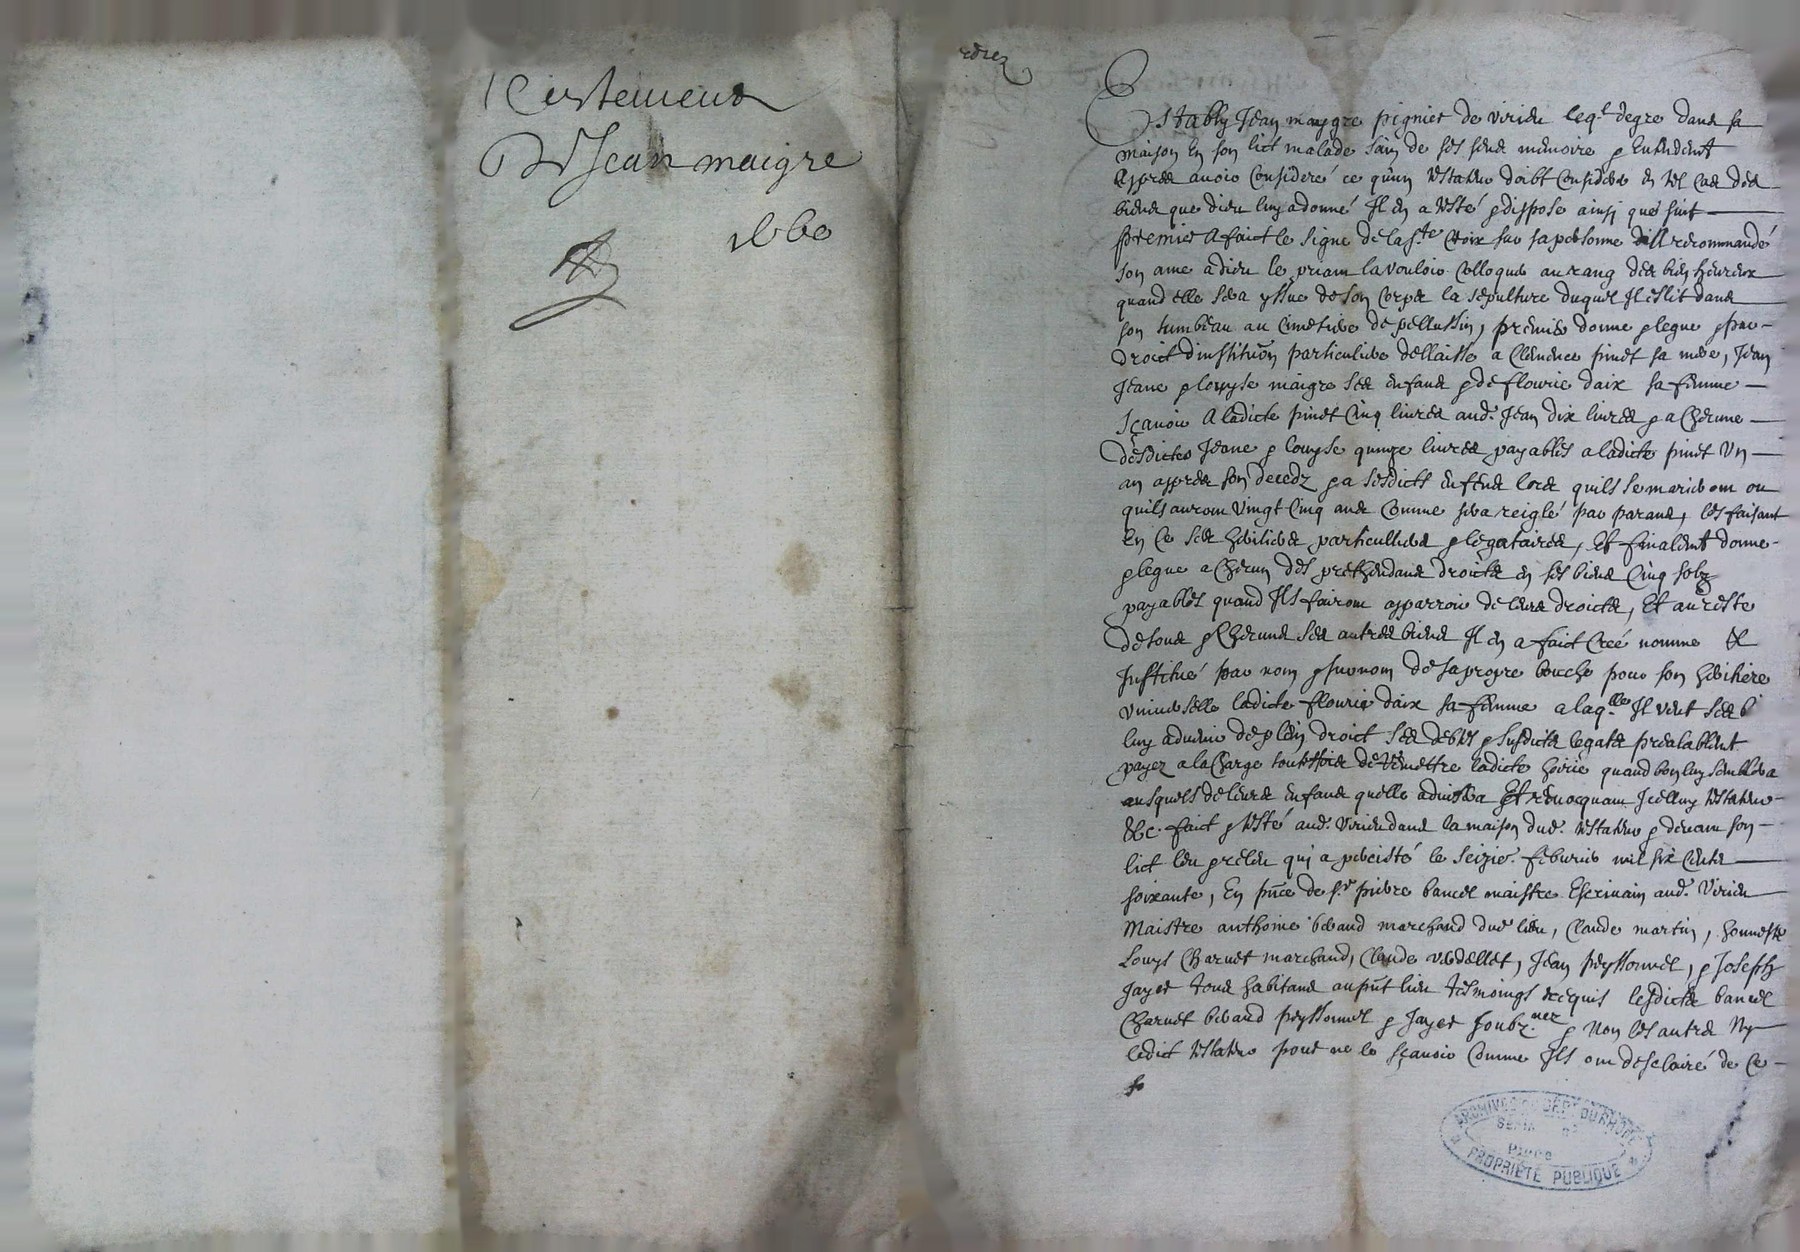 Testement
De Jean maigre
1660
Estably Jean maygre pignier de virieu leql degre dans sa
maison en son lict malade sain de ses sens memoire & entendemt
Appres auoir consideré ce qu'un testateur doibt considerer en tel cas des
biens que dieu luy a donné Il en a testé & dispose ainsy que suit
premier A faict le signe de la ste Croix sur sa personne Recommandé
son ame a dieu le priant la vouloir Colloquer au rang des bien heureux
quand elle sera yssue de son Corps la sepulture duquel Il eslit dans
son tumbeau au Cimetiere de pellussin, premier donne & legue & par
droict d'institũon particuliere dellaisse a Clemence pinet sa mere, Jean
Jeane & louyse maigre ses enfans & de flourie daix sa femme
Sçauoir A ladicte pinet Cinq liures aud. Jean dix liures & a Chcune
desdictes Jeane & louyse quinze liures payables a ladicte pinet Un
an appres son decedz & a sesdicts enfens lors quils se marieront ou
quils auront Vingt Cinq ans Comme sera reiglé par parans, les faisant
En Ce ses heritiers particulliers & legataires, Et finalemt donne
& legue a Chcun des prethendans droicts en ses biens Cinq solz
payables quand Ils fairont apparroir de leurs droicts, Et au reste
de tous & Chcuns ses autres biens Il en a faict Creé nommé &
Institué par nom & surnom de sa propre bouche pour son heritiere
vniuerselle ladicte flourie daix sa femme a laqlle Il veut ses b
luy aduenir de plein droict ses debtes & susdicts legats prealablemt
payez a la Charge touttesfois de remettre ladicte hoirie quand bon luy semblera
ausquels de leurs enfans quelle aduisera Et reuocquant Icelluy testateur
&c. faict & testé aud. Virieu dans la maison dud. testateur & deuant son
lict leu & releu qui a percisté le seizie. feburier mil six cents
soixante, En pñce de sr pierre bancel maistre Escriuain aud. Virieu
Maistre anthoine beraud marchand dud lieu, Claude martin, honneste
Louys Charuet marchand, Claude verdellet, Jean peyssonnel, & Joseph
Jayet tous habitans au pñt lieu tesmoings recquis lesdicts bancel
Charuet beraud peyssonnel & Jayet soubz.nez & Non les autres Ny
ledict testateur pour ne le sçauoir Comme Ils ont desclairé de Ce
ARCHIVES DU DEPT DU RHONE
SERIE
PROPRIETE PUBLIQUE